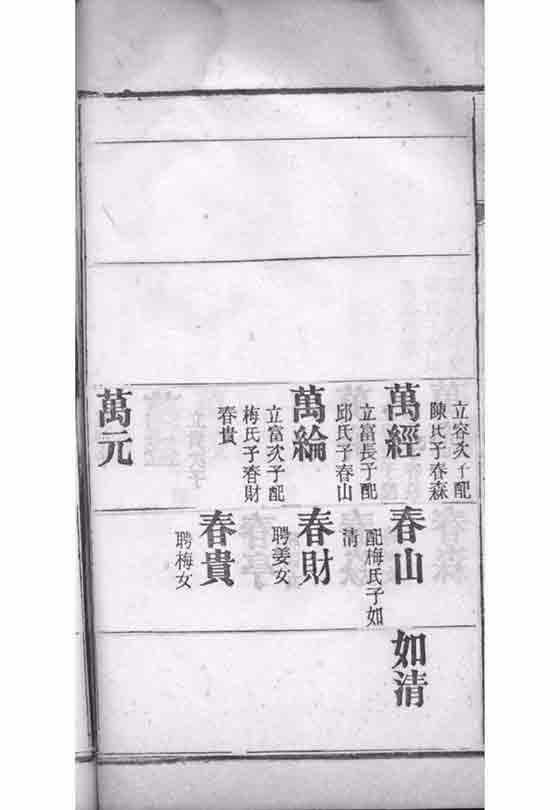 立容次子配
陳氏子春森
萬經
立富長子配
邱氏子春山
萬綸
立富次子配
梅氏子春財
春貴
萬元
春山
配梅氏子如
清
春財
聘姜女
春貴
聘梅女
如清